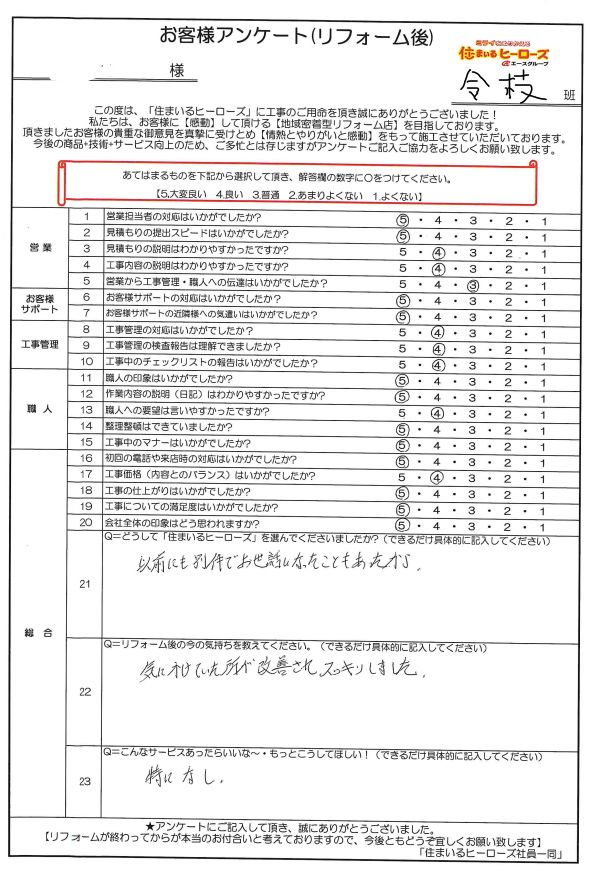 お客様アンケート(リフォーム後)
ミライをたたかえる
住まいるヒーローズ
エースグループ
様
令枝 班
この度は、「住まいるヒーローズ」に工事のご用命を頂き誠にありがとうございました！
私たちは、お客様に【感動】して頂ける【地域密着型リフォーム店】を目指しております。
頂きましたお客様の貴重な御意見を真摯に受けとめ【情熱とやりがいと感動】をもって施工させていただいております。
今後の商品+技術+サービス向上のため、ご多忙とは存じますがアンケートご記入ご協力をよろしくお願い致します。
あてはまるものを下記から選択して頂き、解答欄の数字に〇をつけてください。
【5.大変良い 4.良い 3.普通 2.あまりよくない 1.よくない】
営業
1 営業担当者の対応はいかがでしたか? ⑤・4・3・2・1
2 見積もりの提出スピードはいかがでしたか? ⑤・4・3・2・1
3 見積もりの説明はわかりやすかったですか? 5・④・3・2・1
4 工事内容の説明はわかりやすかったですか? 5・④・3・2・1
5 営業から工事管理・職人への伝達はいかがでしたか? 5・4・③・2・1
お客様
サポート
6 お客様サポートの対応はいかがでしたか? ⑤・4・3・2・1
7 お客様サポートの近隣様への気遣いはいかがでしたか? ⑤・4・3・2・1
工事管理
8 工事管理の対応はいかがでしたか? 5・④・3・2・1
9 工事管理の検査報告は理解できましたか? 5・④・3・2・1
10 工事中のチェックリストの報告はいかがでしたか? 5・④・3・2・1
職人
11 職人の印象はいかがでしたか? ⑤・4・3・2・1
12 作業内容の説明（日記）はわかりやすかったですか? ⑤・4・3・2・1
13 職人への要望は言いやすかったですか? 5・④・3・2・1
14 整理整頓はできていましたか? ⑤・4・3・2・1
15 工事中のマナーはいかがでしたか? ⑤・4・3・2・1
総合
16 初回の電話や来店時の対応はいかがでしたか? ⑤・4・3・2・1
17 工事価格（内容とのバランス）はいかがでしたか? 5・④・3・2・1
18 工事の仕上がりはいかがでしたか? ⑤・4・3・2・1
19 工事についての満足度はいかがでしたか? ⑤・4・3・2・1
20 会社全体の印象はどう思われますか? ⑤・4・3・2・1
21 Q=どうして「住まいるヒーローズ」を選んでくださいましたか?（できるだけ具体的に記入してください）
以前にも別件でお世話になったこともあったから。
22 Q=リフォーム後の今の気持ちを教えてください。（できるだけ具体的に記入してください）
気にかけていた所が改善されスッキリしました。
23 Q=こんなサービスあったらいいな～・もっとこうしてほしい！（できるだけ具体的に記入してください）
特になし。
★アンケートにご記入して頂き、誠にありがとうございました。
【リフォームが終わってからが本当のお付合いと考えておりますので、今後ともどうぞ宜しくお願い致します】
「住まいるヒーローズ社員一同」